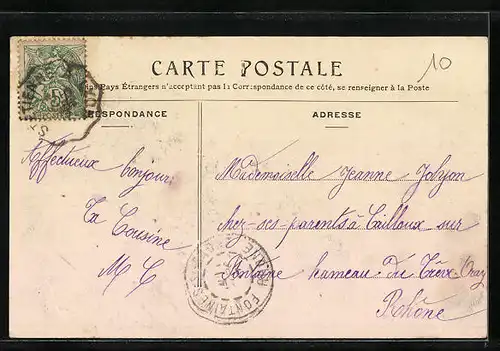 10
CARTE POSTALE
Pays Étrangers n'acceptant pas la Correspondance de ce côté, se renseigner à la Poste
RESPONDANCE
ADRESSE
5
Affectueux bonjour
Ta Cousine
M. C
Mademoiselle Jeanne
chez ses parents à Cailloux sur
Fontaine hameau du
Rhône
FONTAINES
RHONE